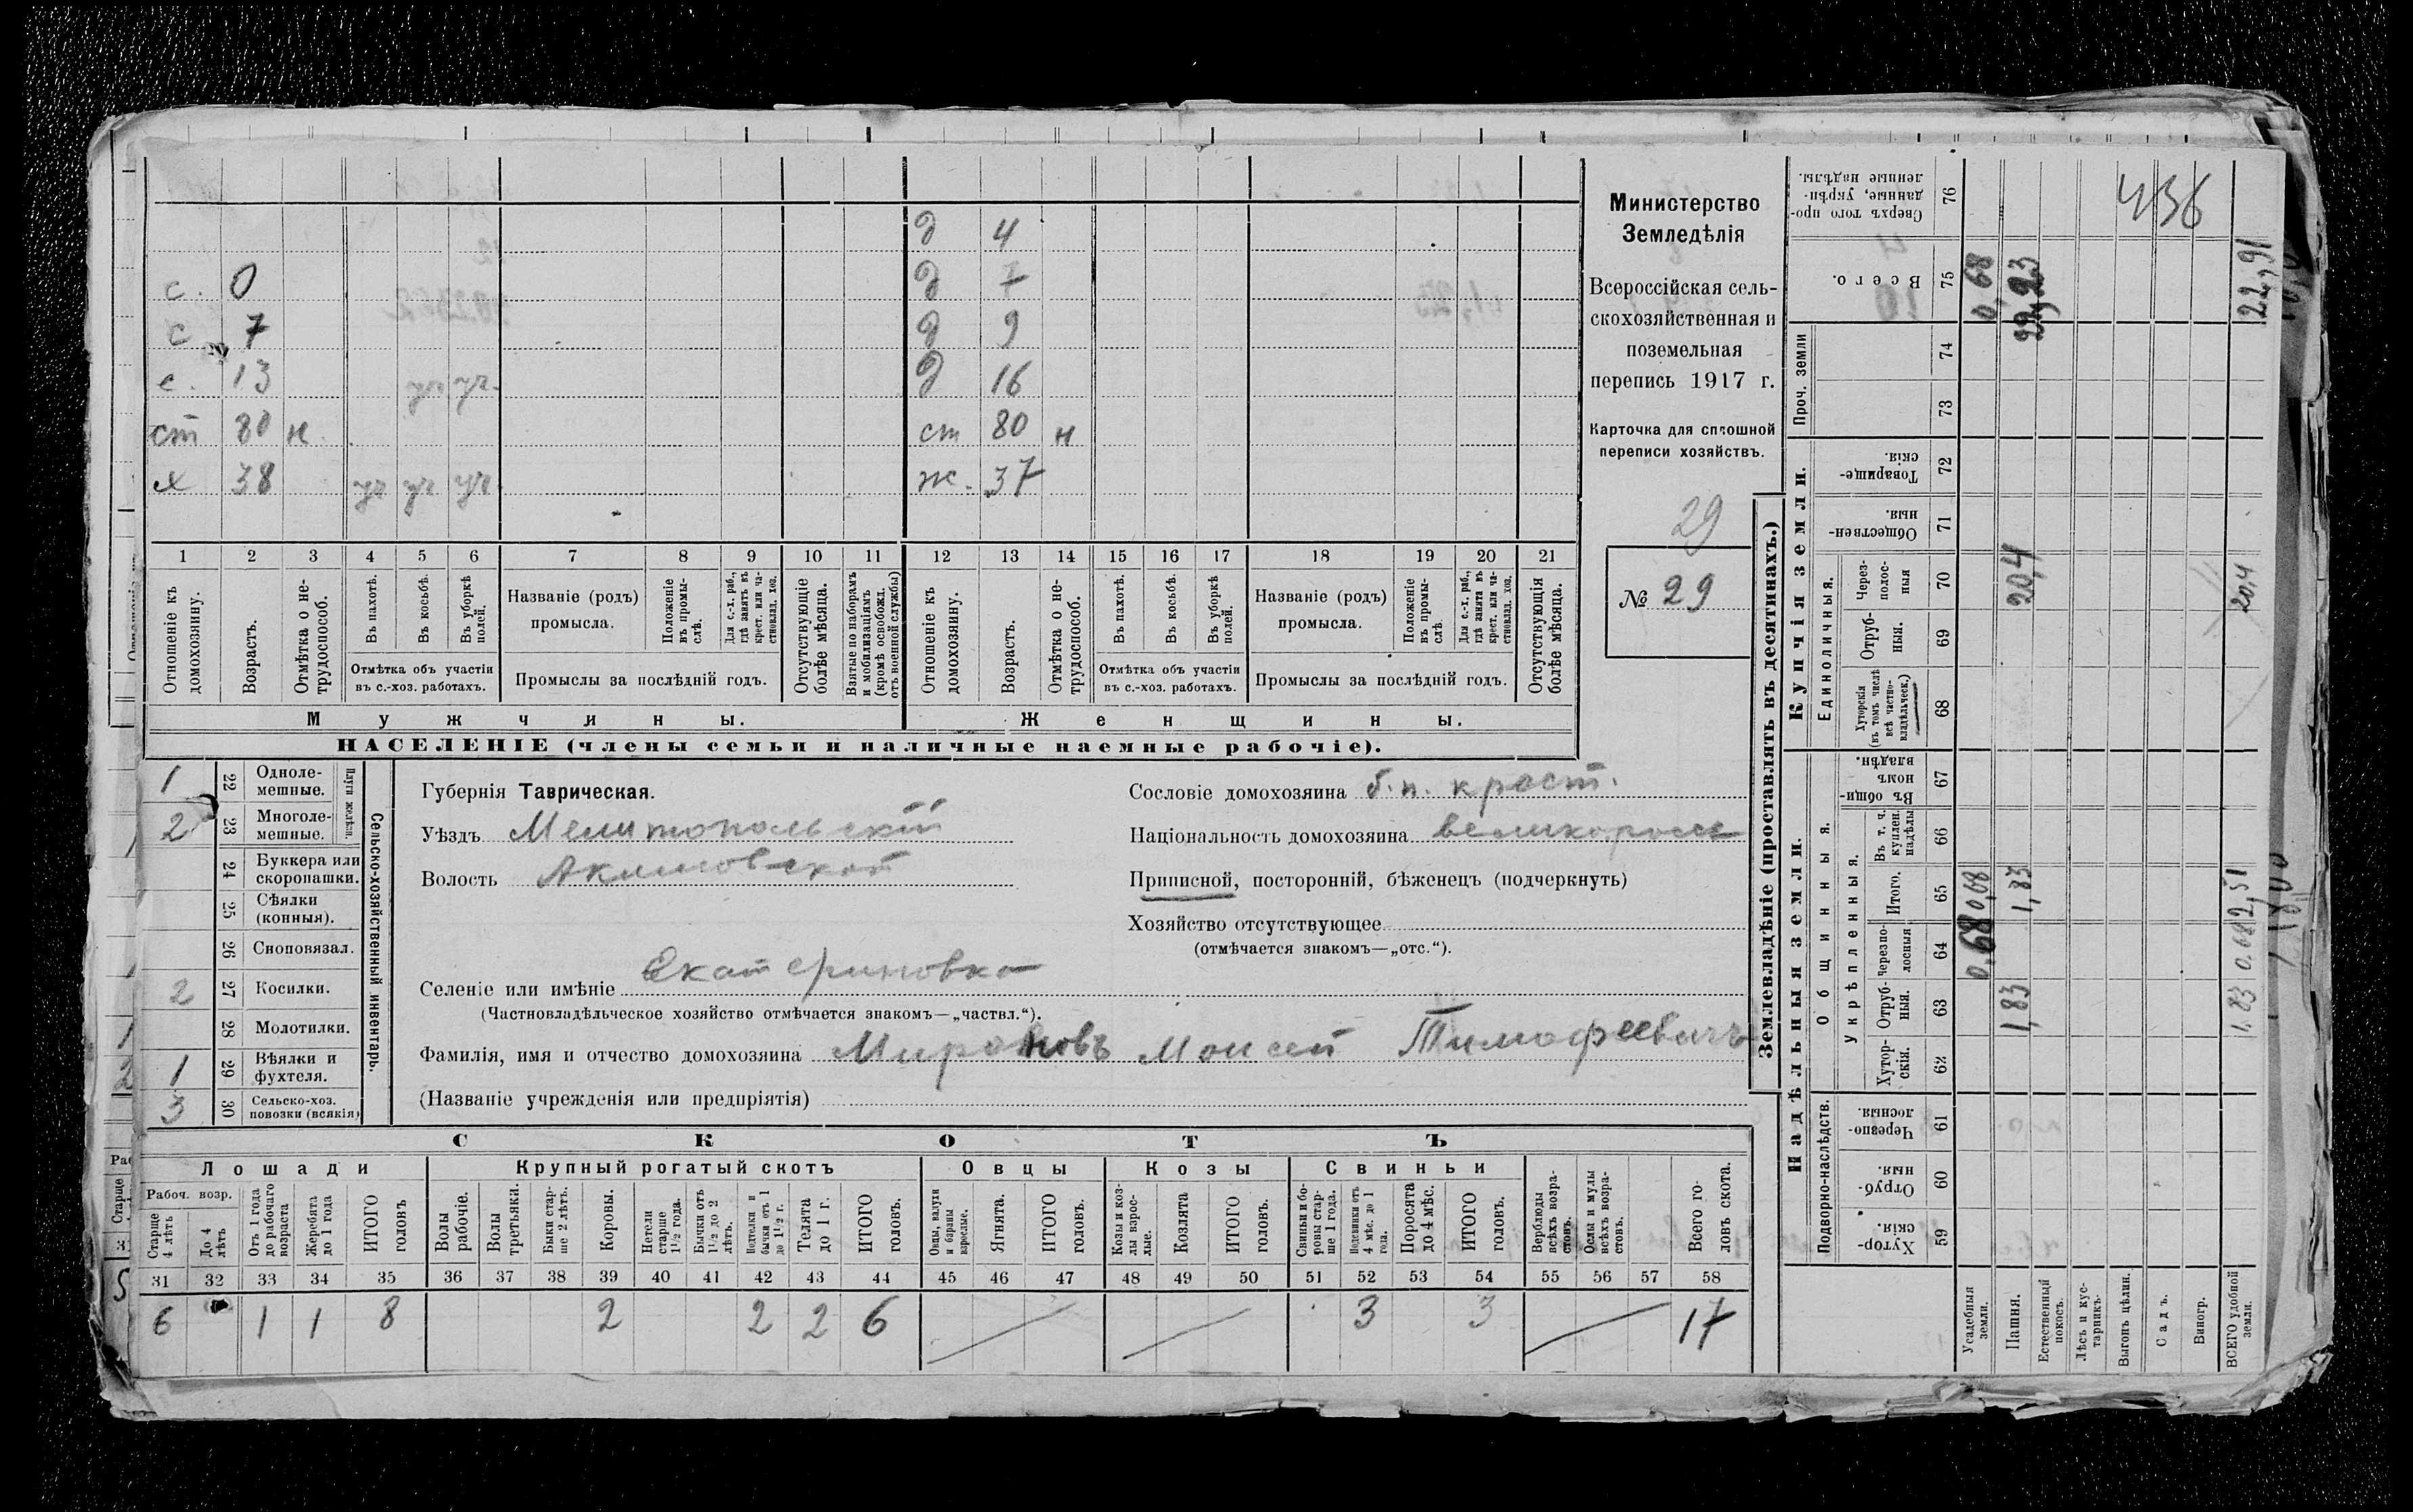 д 4
с. 0 д 7
с 7 д 9
с. 13 уч уч. д 16
ст 80 н ст 80 н
х 38 уч уч уч. ж. 37
1 2 3 4 5 6 7 8 9 10 11 12 13 14 15 16 17 18 19 20 21
Отношеніе къ домохозяину.
Возрастъ.
Отмѣтка о не-
трудоспособ.
Въ пахотѣ.
Въ косьбѣ.
Въ уборкѣ
полей.
Отмѣтка объ участіи
въ с.-хоз. работахъ.
Названіе (родъ)
промысла.
Положеніе
въ промы-
слѣ.
Для с.-х. раб.,
гдѣ занятъ въ
крест. или ча-
стновлад. хоз.
Промыслы за послѣдній годъ.
Отсутствующіе
болѣе мѣсяца.
Взятые по наборамъ
и мобилизаціямъ
(кромѣ освобожд.
отъ военной службы)
Отношеніе къ
домохозяину.
Возрастъ.
Отмѣтка о не-
трудоспособ.
Въ пахотѣ.
Въ косьбѣ.
Въ уборкѣ
полей.
Отмѣтка объ участіи
въ с.-хоз. работахъ.
Названіе (родъ)
промысла.
Положеніе
въ промы-
слѣ.
Для с.-х. раб.,
гдѣ занята въ
крест. или ча-
стновлад. хоз.
Промыслы за послѣдній годъ.
Отсутствующія
болѣе мѣсяца.
Мужчины.
Женщины.
НАСЕЛЕНІЕ (члены семьи и наличные наемные рабочіе).
Министерство
Земледѣлія
Всероссійская сель-
скохозяйственная и
поземельная
перепись 1917 г.
Карточка для сплошной
переписи хозяйствъ.
29
№ 29
1 22 Одноле-
мешные.
2 23 Многоле-
мешные.
Плуги желѣзн.
24 Буккера или
скоропашки.
25 Сѣялки
(конныя).
26 Сноповязал.
2 27 Косилки.
28 Молотилки.
1 29 Вѣялки и
фухтеля.
3 30 Сельско-хоз.
повозки (всякія)
Сельско-хозяйственный инвентарь.
Губернія Таврическая.
Уѣздъ Мелитопольскій
Волость Акимовской
Селеніе или имѣніе Екатериновка
(Частновладѣльческое хозяйство отмѣчается знакомъ—„частвл.“).
Фамилія, имя и отчество домохозяина Мироновъ Моисей Тимофеевичъ
(Названіе учрежденія или предпріятія)
Сословіе домохозяина б.п. крест.
Національность домохозяина великороссъ
Приписной, посторонній, бѣженецъ (подчеркнуть)
Хозяйство отсутствующее
(отмѣчается знакомъ—„отс.“).
СКОТЪ
Лошади Крупный рогатый скотъ Овцы Козы Свиньи
Рабоч. возр.
Старше
4 лѣтъ
До 4
лѣтъ
Отъ 1 года
до рабочаго
возраста
Жеребята
до 1 года
ИТОГО
головъ
Волы
рабочіе.
Волы
третьяки.
Быки стар-
ше 2 лѣтъ.
Коровы.
Нетели
старше
1½ года.
Бычки отъ
1½ до 2
лѣтъ.
Подтелки и
бычки отъ 1
до 1½ г.
Телята
до 1 г.
ИТОГО
головъ.
Овцы, валухи
и бараны
взрослые.
Ягнята.
ИТОГО
головъ.
Козы и коз-
лы взрос-
лые.
Козлята
ИТОГО
головъ.
Свиньи и бо-
ровы стар-
ше 1 года.
Подсвинки отъ
4 мѣс. до 1
года.
Поросята
до 4 мѣс.
ИТОГО
головъ.
Верблюды
всѣхъ возра-
стовъ.
Ослы и мулы
всѣхъ возра-
стовъ.
Всего го-
ловъ скота.
31 32 33 34 35 36 37 38 39 40 41 42 43 44 45 46 47 48 49 50 51 52 53 54 55 56 57 58
6 1 1 8 2 2 2 6 3 3 17
Землевладѣніе (проставлять въ десятинахъ.)
Купчія земли.
Надѣльныя земли.
Сверхъ того про-
данные, укрѣп-
ленные надѣлы.
76
436
Всего.
75 0,68 22,23 22,91
Проч. земли
74
73
Товарище-
скія.
72
Обществен-
ныя.
71
Единоличныя.
Через-
полос-
ныя
70 20,4 20,4
Отруб-
ныя.
69
Хуторскія
(въ томъ числѣ
всѣ частно-
владѣльческ.)
68
Общинныя.
Въ общи-
номъ
владѣн.
67
Укрѣпленныя.
Въ т. ч.
куплен.
надѣлы
66
Итого.
65 0,68 1,83 2,51
Черезпо-
лосныя
64 0,68 0,68
Отруб-
ныя.
63 1,83 1,83
Хутор-
скія.
62
Подворно-наслѣдств.
Черезпо-
лосныя.
61
Отруб-
ныя.
60
Хутор-
скія.
59
Усадебныя
земли.
Пашня.
Естественный
покосъ.
Лѣсъ и кус-
тарникъ.
Выгонъ цѣлин.
Садъ.
Виногр.
ВСЕГО удобной
земли.